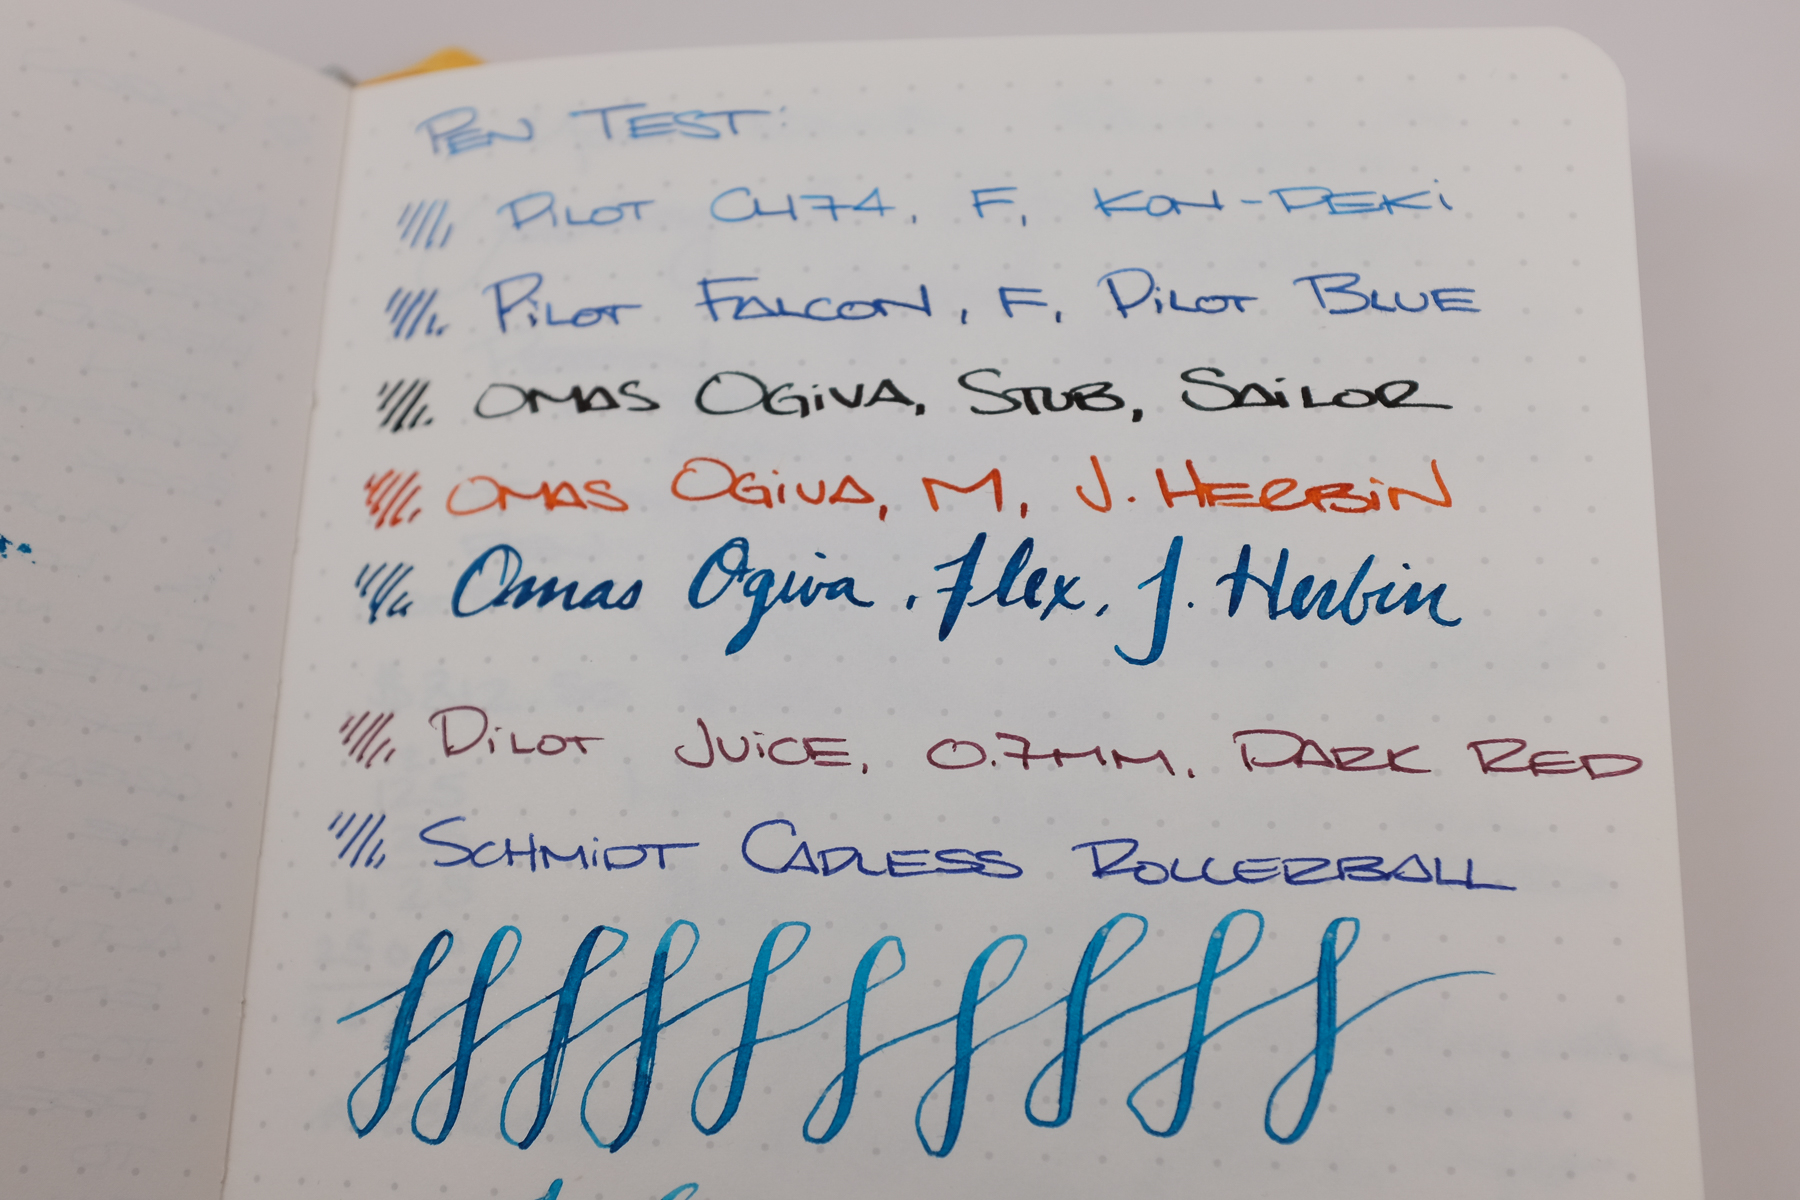 PEN TEST:
PILOT CH74, F, KON-PEKi
PiLOT FALCON, F, PiLOT BLUE
OMAS OGiVA, STUB, SAiLOR
OMAS OGiVA, M, J. HERBiN
Omas Ogiva, Flex, J. Herbin
PiLOT JUiCE, 0.7MM, DARK RED
SCHMiDT CAPLESS ROLLERBALL